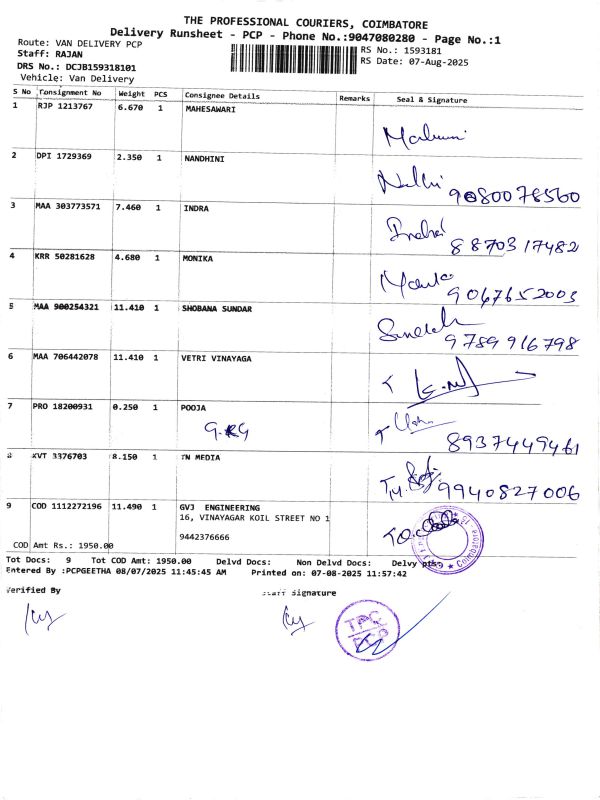 THE PROFESSIONAL COURIERS, COIMBATORE
Delivery Runsheet - PCP - Phone No.:9047080280 - Page No.:1
Route: VAN DELIVERY PCP
RS No.: 1593181
Staff: RAJAN
RS Date: 07-Aug-2025
DRS No.: DCJB159318101
Vehicle: Van Delivery
S No Consignment No Weight PCS Consignee Details Remarks Seal & Signature
1 RJP 1213767 6.670 1 MAHESAWARI
2 DPI 1729369 2.350 1 NANDHINI
9080078560
3 MAA 303773571 7.460 1 INDRA
8870317482
4 KRR 50281628 4.680 1 MONIKA
9047652003
5 MAA 900254321 11.410 1 SHOBANA SUNDAR
9789916798
6 MAA 706442078 11.410 1 VETRI VINAYAGA
7 PRO 18200931 0.250 1 POOJA
8937449461
8 KVT 3376703 8.150 1 TN MEDIA
9940827006
9 COD 1112272196 11.490 1 GVJ ENGINEERING
16, VINAYAGAR KOIL STREET NO 1
9442376666
COD Amt Rs.: 1950.00
Tot Docs: 9 Tot COD Amt: 1950.00 Delvd Docs: Non Delvd Docs: Delvy
Entered By :PCPGEETHA 08/07/2025 11:45:45 AM Printed on: 07-08-2025 11:57:42
Verified By Staff Signature